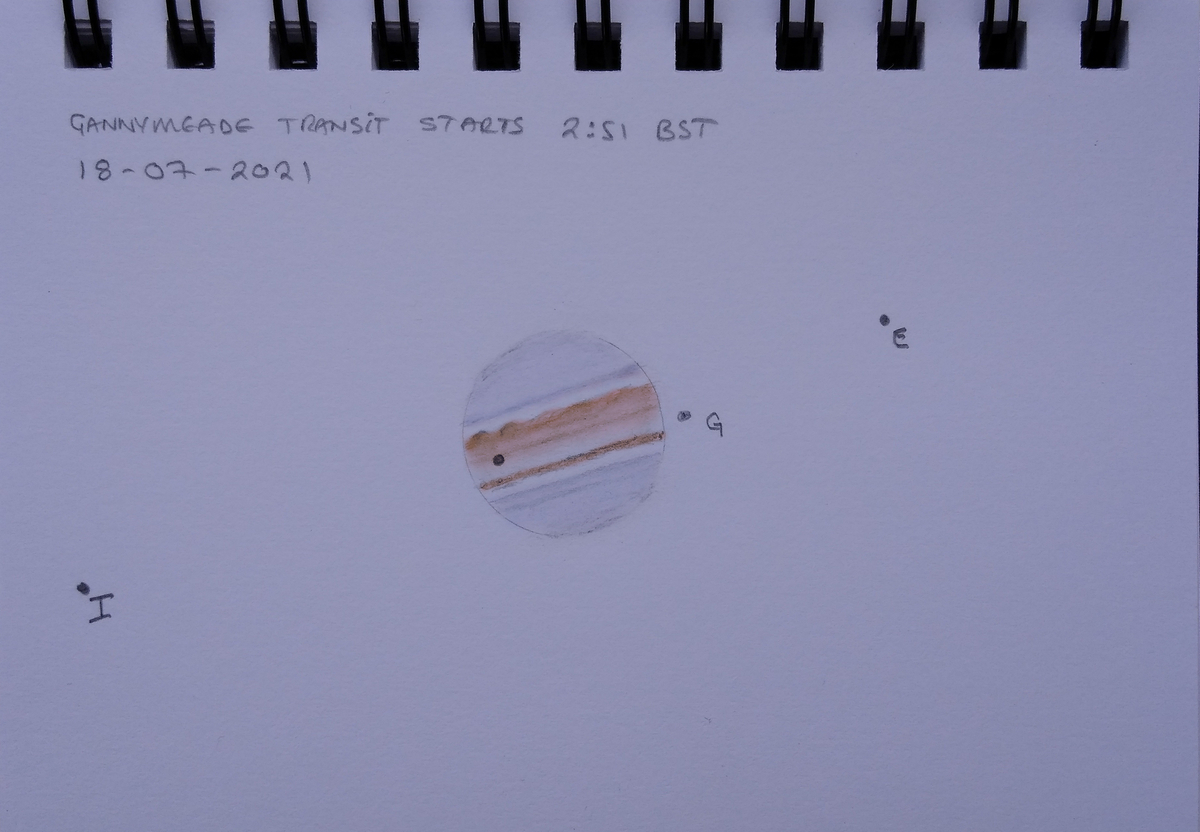 GANNYMEADE TRANSIT STARTS 2:51 BST
18-07-2021
E
G
I